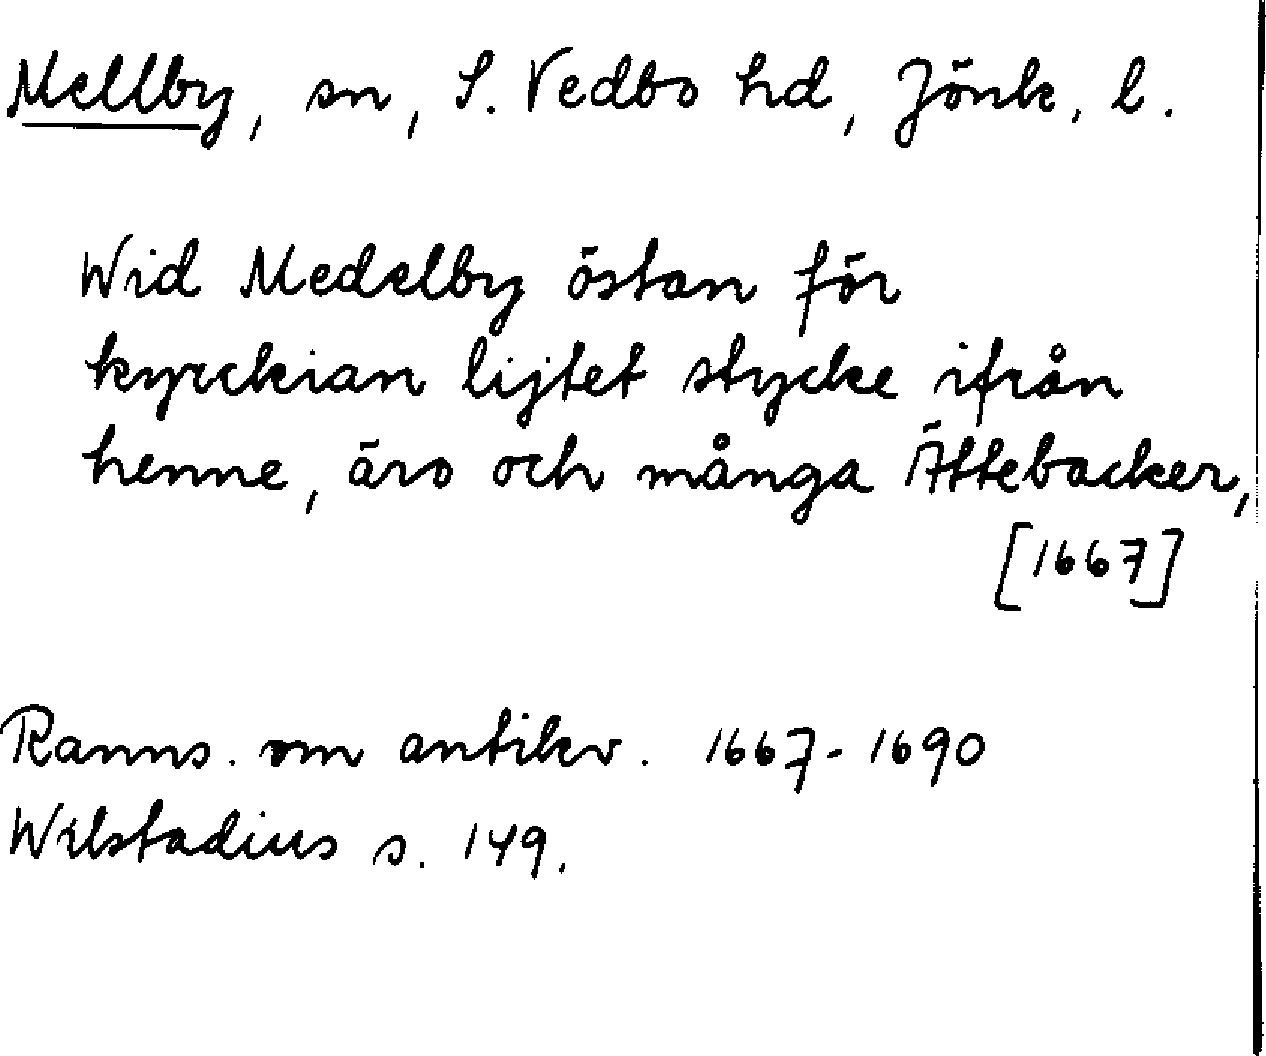 Mellby, sn, S. Vedbo hd, Jönk. l.
Wid Medelby östan för
kyrckian lijtet stycke ifrån
henne, äro och många Ättebacker,
[1667]
Ranns. om antikv. 1667-1690
Wilstadius s. 149.